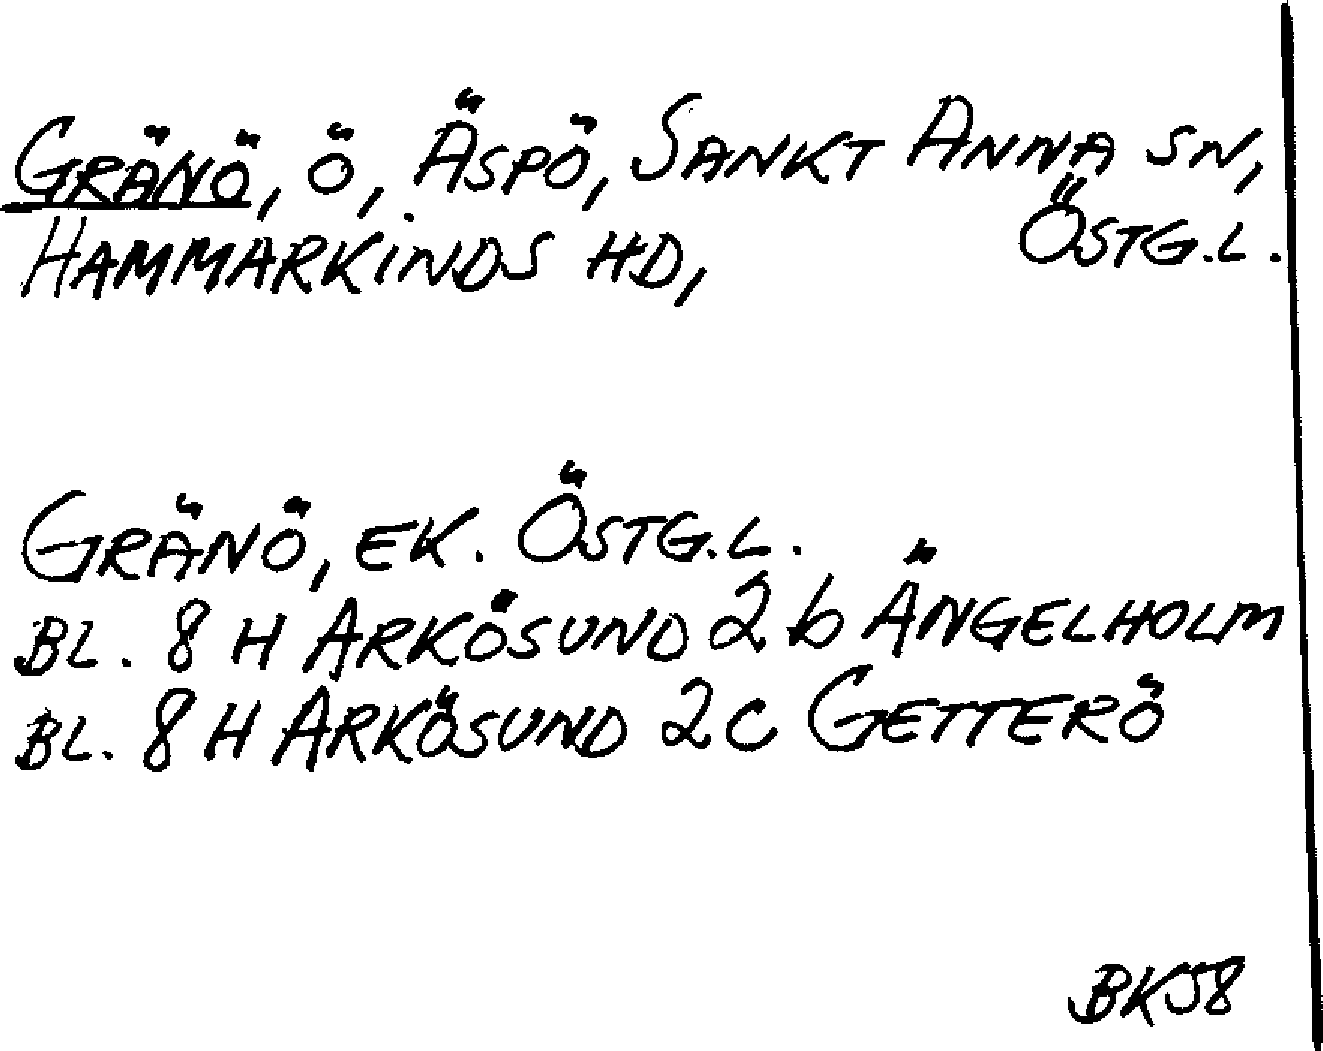 GRÄNÖ, Ö, ÄSPÖ, SANKT ANNA SN,
HAMMARKINDS HD, ÖSTG.L.
GRÄNÖ, EK. ÖSTG.L.
BL. 8 H ARKÖSUND 2 b ÄNGELHOLM
BL. 8 H ARKÖSUND 2 C GETTERÖ
BK58